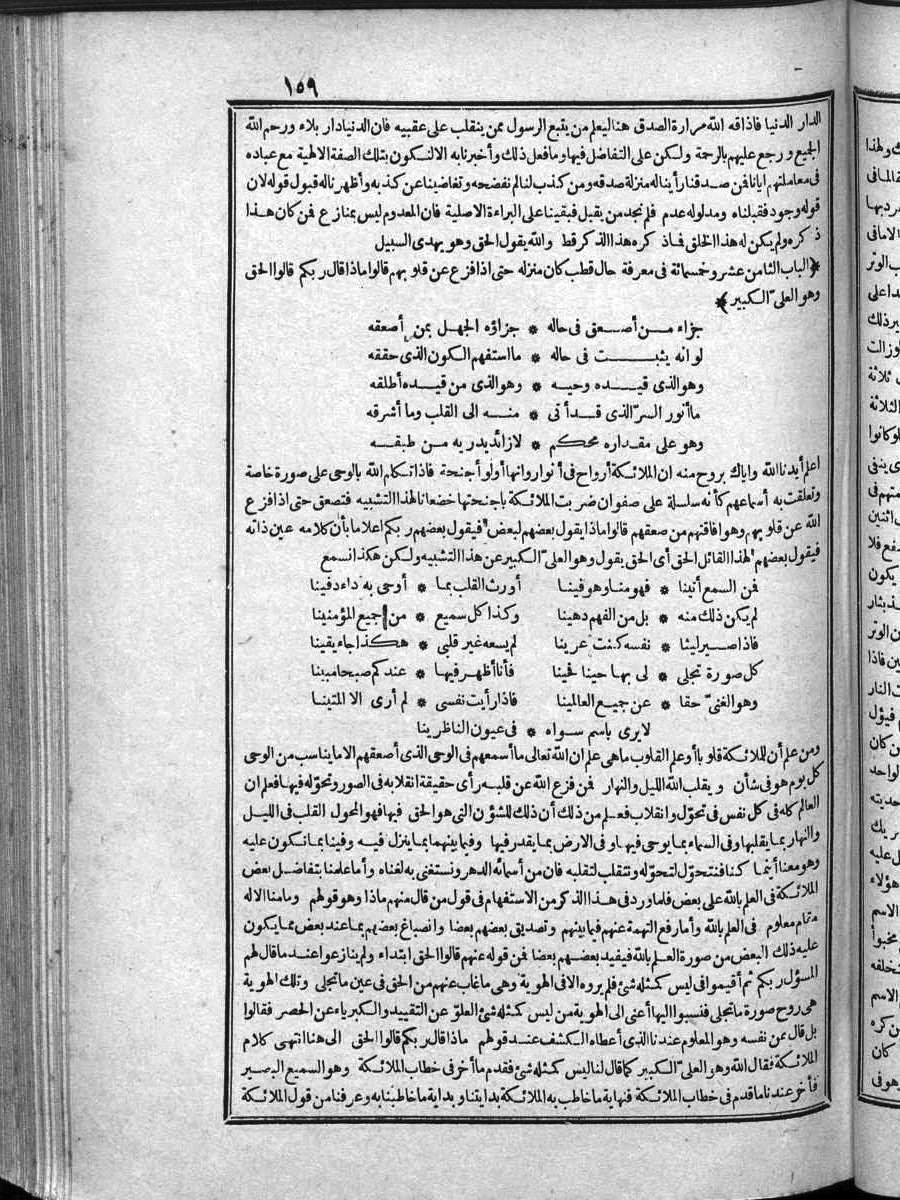 ١٥٩
الدار الدنيا فاذاقه الله مرارة الصدق هنا ليعلم من يتبع الرسول ممن ينقلب على عقبيه فان الدنيا دار بلاء ورحم الله
الجميع ورجع عليهم بالرحمة ولكن على التفاضل فيها وما فعل ذلك وأخبرنا به الا لنكون بتلك الصفة الالهية مع عباده
فى معاملتهم ايانا فمن صدقنا رأينا له منزلة صدقه ومن كذب لنا لم نفضحه وتغاضينا عن كذبه وأظهرنا له قبول قوله لان
قوله وجود فقبلناه ومدلوله عدم فلم نجد من يقبل فبقينا على البراءة الاصلية فان المعدوم ليس بمنازع فمن كان هذا
ذكره ولم يكن له هذا الخلق فاذكره هذا الذكر قط والله يقول الحق وهو يهدى السبيل
﴿الباب الثامن عشر وخمسمائة فى معرفة حال قطب كان منزله حتى اذا فزع عن قلوبهم قالوا ماذا قال ربكم قالوا الحق
وهو العلىّ الكبير﴾
جزاء من أصعق فى حاله * جزاؤه الجهل بمن أصعقه
لو انه يثبت فى حاله * ما استفهم الكون الذى حققه
وهو الذى قيده وحيه * وهو الذى من قيده أطلقه
ما أنور السرّ الذى قد أتى * منه الى القلب وما أشرقه
وهو على مقداره محكم * لا زائد يدريه من طبقه
اعلم أيدنا الله واياك بروح منه ان الملائكة أرواح فى أنوار وانها أولو أجنحة فاذا تكلم الله بالوحى على صورة خاصة
وتعلقت به أسماعهم كأنه سلسلة على صفوان ضربت الملائكة باجنحتها خضعانا لهذا التشبيه فتصعق حتى اذا فزع
الله عن قلوبهم وهو افاقتهم من صعقهم قالوا ماذا يقول بعضهم لبعض فيقول بعضهم ربكم اعلاما بأن كلامه عين ذاته
فيقول بعضهم لهذا القائل الحق أى الحق يقول وهو العلىّ الكبير عن هذا التشبيه ولكن هكذا نسمع
فمن السمع أتينا * فهو منا وهو فينا أورث القلب بما * أوحى به داء دفينا
لم يكن ذلك منه * بل من الفهم دهينا وكذا كل سميع * من جميع المؤمنينا
فاذا صير ليثا * نفسه كنت عرينا لم يسعه غير قلبى * هكذا جاء يقينا
كل صورة تجلى * لى بها حينا فحينا فأنا أظهر فيها * عندكم صبحا مبينا
وهو الغنىّ حقا * عن جميع العالمينا فاذا رأيت نفسى * لم أرى الا المتينا
لا يرى باسم سواه * فى عيون الناظرينا
ومن علم أن للملائكة قلوبا أو علم القلوب ما هى علم ان الله تعالى ما أسمعهم فى الوحى الذى أصعقهم الا ما يناسب من الوحى
كل يوم هو فى شأن ويقلب الله الليل والنهار فمن فزع الله عن قلبه رأى حقيقة انقلابه فى الصور وتحوّله فيها فعلم ان
العالم كله فى كل نفس فى تحوّل وانقلاب فعلم من ذلك أن ذلك للشؤن التى هو الحق فيها فهو المحول القلب فى الليل
والنهار بما يقلبها وفى السماء بما يوحى فيها وفى الارض بما يقدر فيها وفيما بينهما بما ينزل فيه وفينا بما نكون عليه
وهو معنا أينما كنا فنتحوّل لتحوّله ونتقلب لتقلبه فان من أسمائه الدهر ونستغنى به لغناه وأما علمنا بتفاضل بعض
الملائكة فى العلم بالله على بعض فلما ورد فى هذا الذكر من الاستفهام فى قول من قال منهم ماذا وهو قولهم وما منا الا له
مقام معلوم فى العلم بالله وأما رفع التهمة عنهم فيما بينهم وتصديق بعضهم بعضا وانصباغ بعضهم بما عند بعض مما يكون
عليه ذلك البعض من صورة العلم بالله فيفيد بعضهم بعضا فمن قوله عنهم قالوا الحق ابتداء ولم ينازعوا عندما قال لهم
المسؤل ربكم ثم أقيموا فى ليس كمثله شئ فلم يروه الا فى الهوية وهى ما غاب عنهم من الحق فى عين ما تجلى وتلك الهوية
هى روح صورة ما تجلى فنسبوا اليها أعنى الى الهوية من ليس كمثله شئ العلوّ عن التقييد والكبرياء عن الحصر فقالوا
بل قال عن نفسه وهو المعلوم عندنا الذى أعطاه الكشف عند قولهم ماذا قال ربكم قالوا الحق الى هنا انتهى كلام
الملائكة فقال الله وهو العلىّ الكبير كما قال لنا ليس كمثله شئ فقدم ما أخر فى خطاب الملائكة وهو السميع البصير
فأخر عندنا ما قدم فى خطاب الملائكة فنهاية ما خاطب به الملائكة بدايتنا وبداية ما خاطبنا به وعرفنا من قول الملائكة